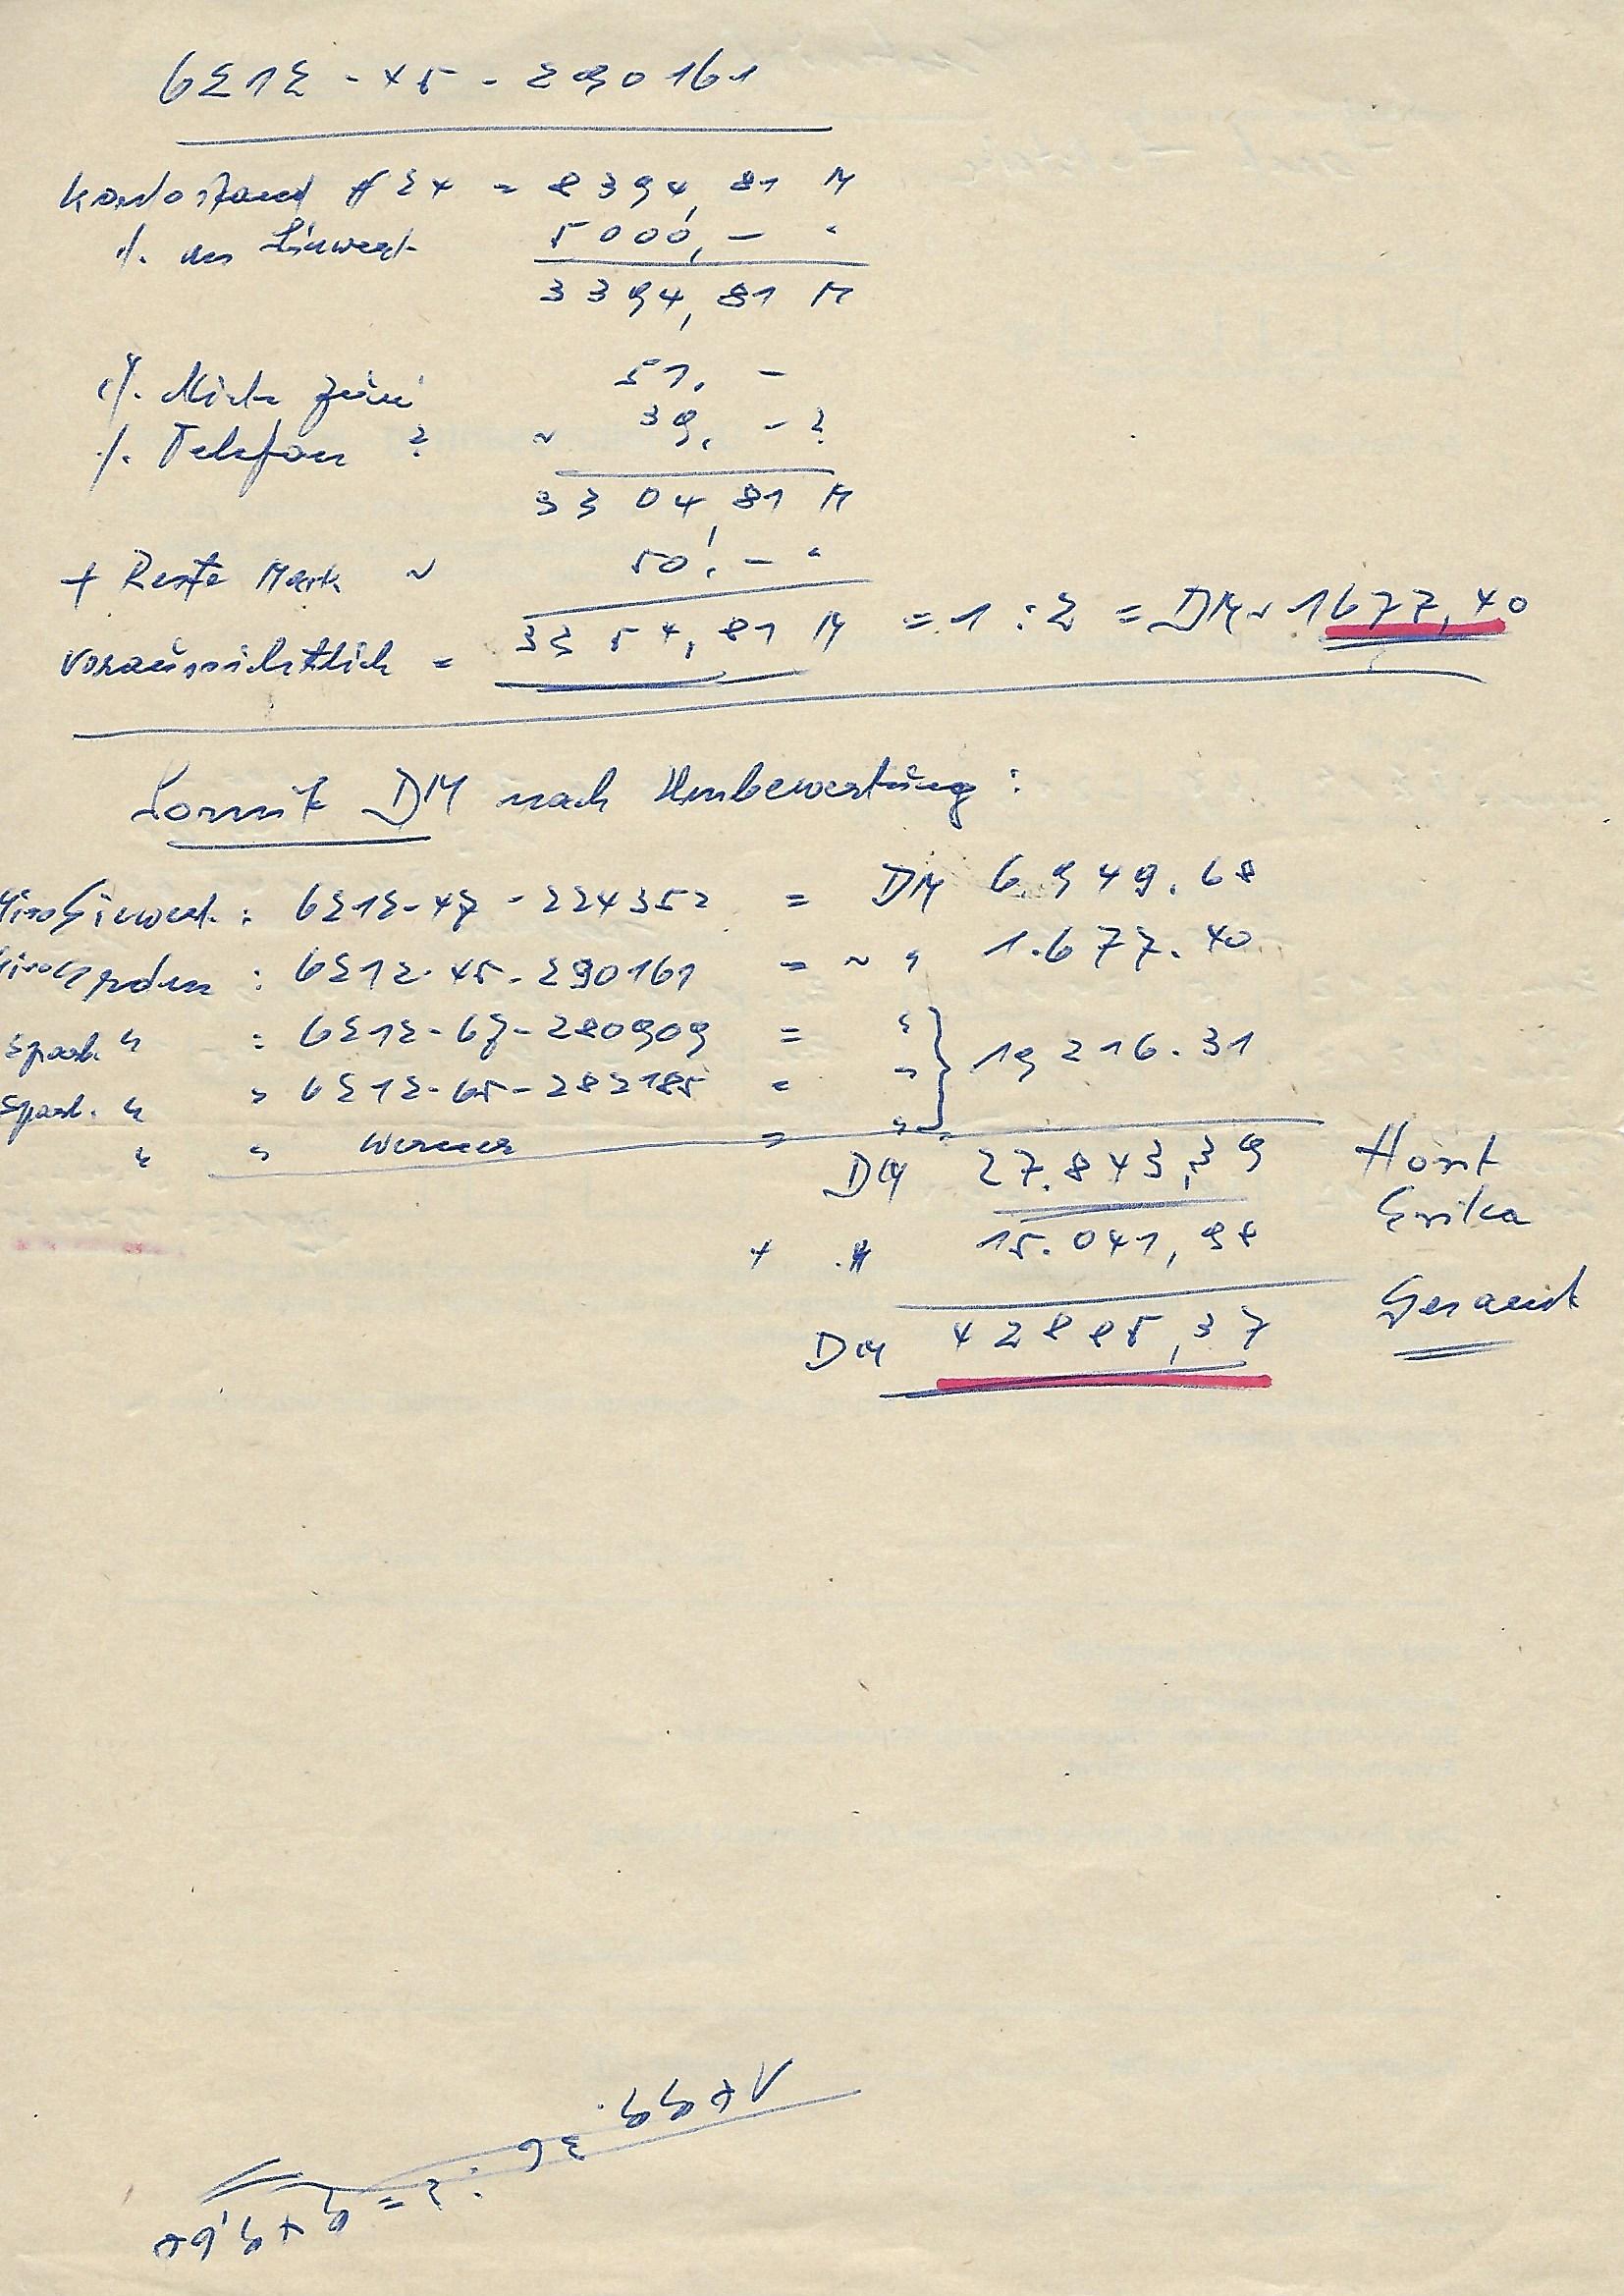 6212 - 45 - 290161
Kontostand # 24 = 8394,81 M
./. an Linwert 5000,— "
3394,81 M
./. Miete Juni 51,—
./. Telefon ? ~ 39,— ?
3304,81 M
+ Reste Mark ~ 50,— "
voraussichtlich = 3354,81 M = 1 : 2 = DM ~ 1677,40
Somit DM nach Umbewertung :
: 6212-47-224352 = DM 6.949.68
: 6212-45-290161 = ~ " 1.677.40
Spark. " : 6212-67-280909 = " }
Spark. " " 6212-65-282185 = " } 19 216.31
" " Werner = "
DM 27.843,39 Horst
+ " 15.041,98 Erika
DM 42885,37 Gesamt
: 2 =